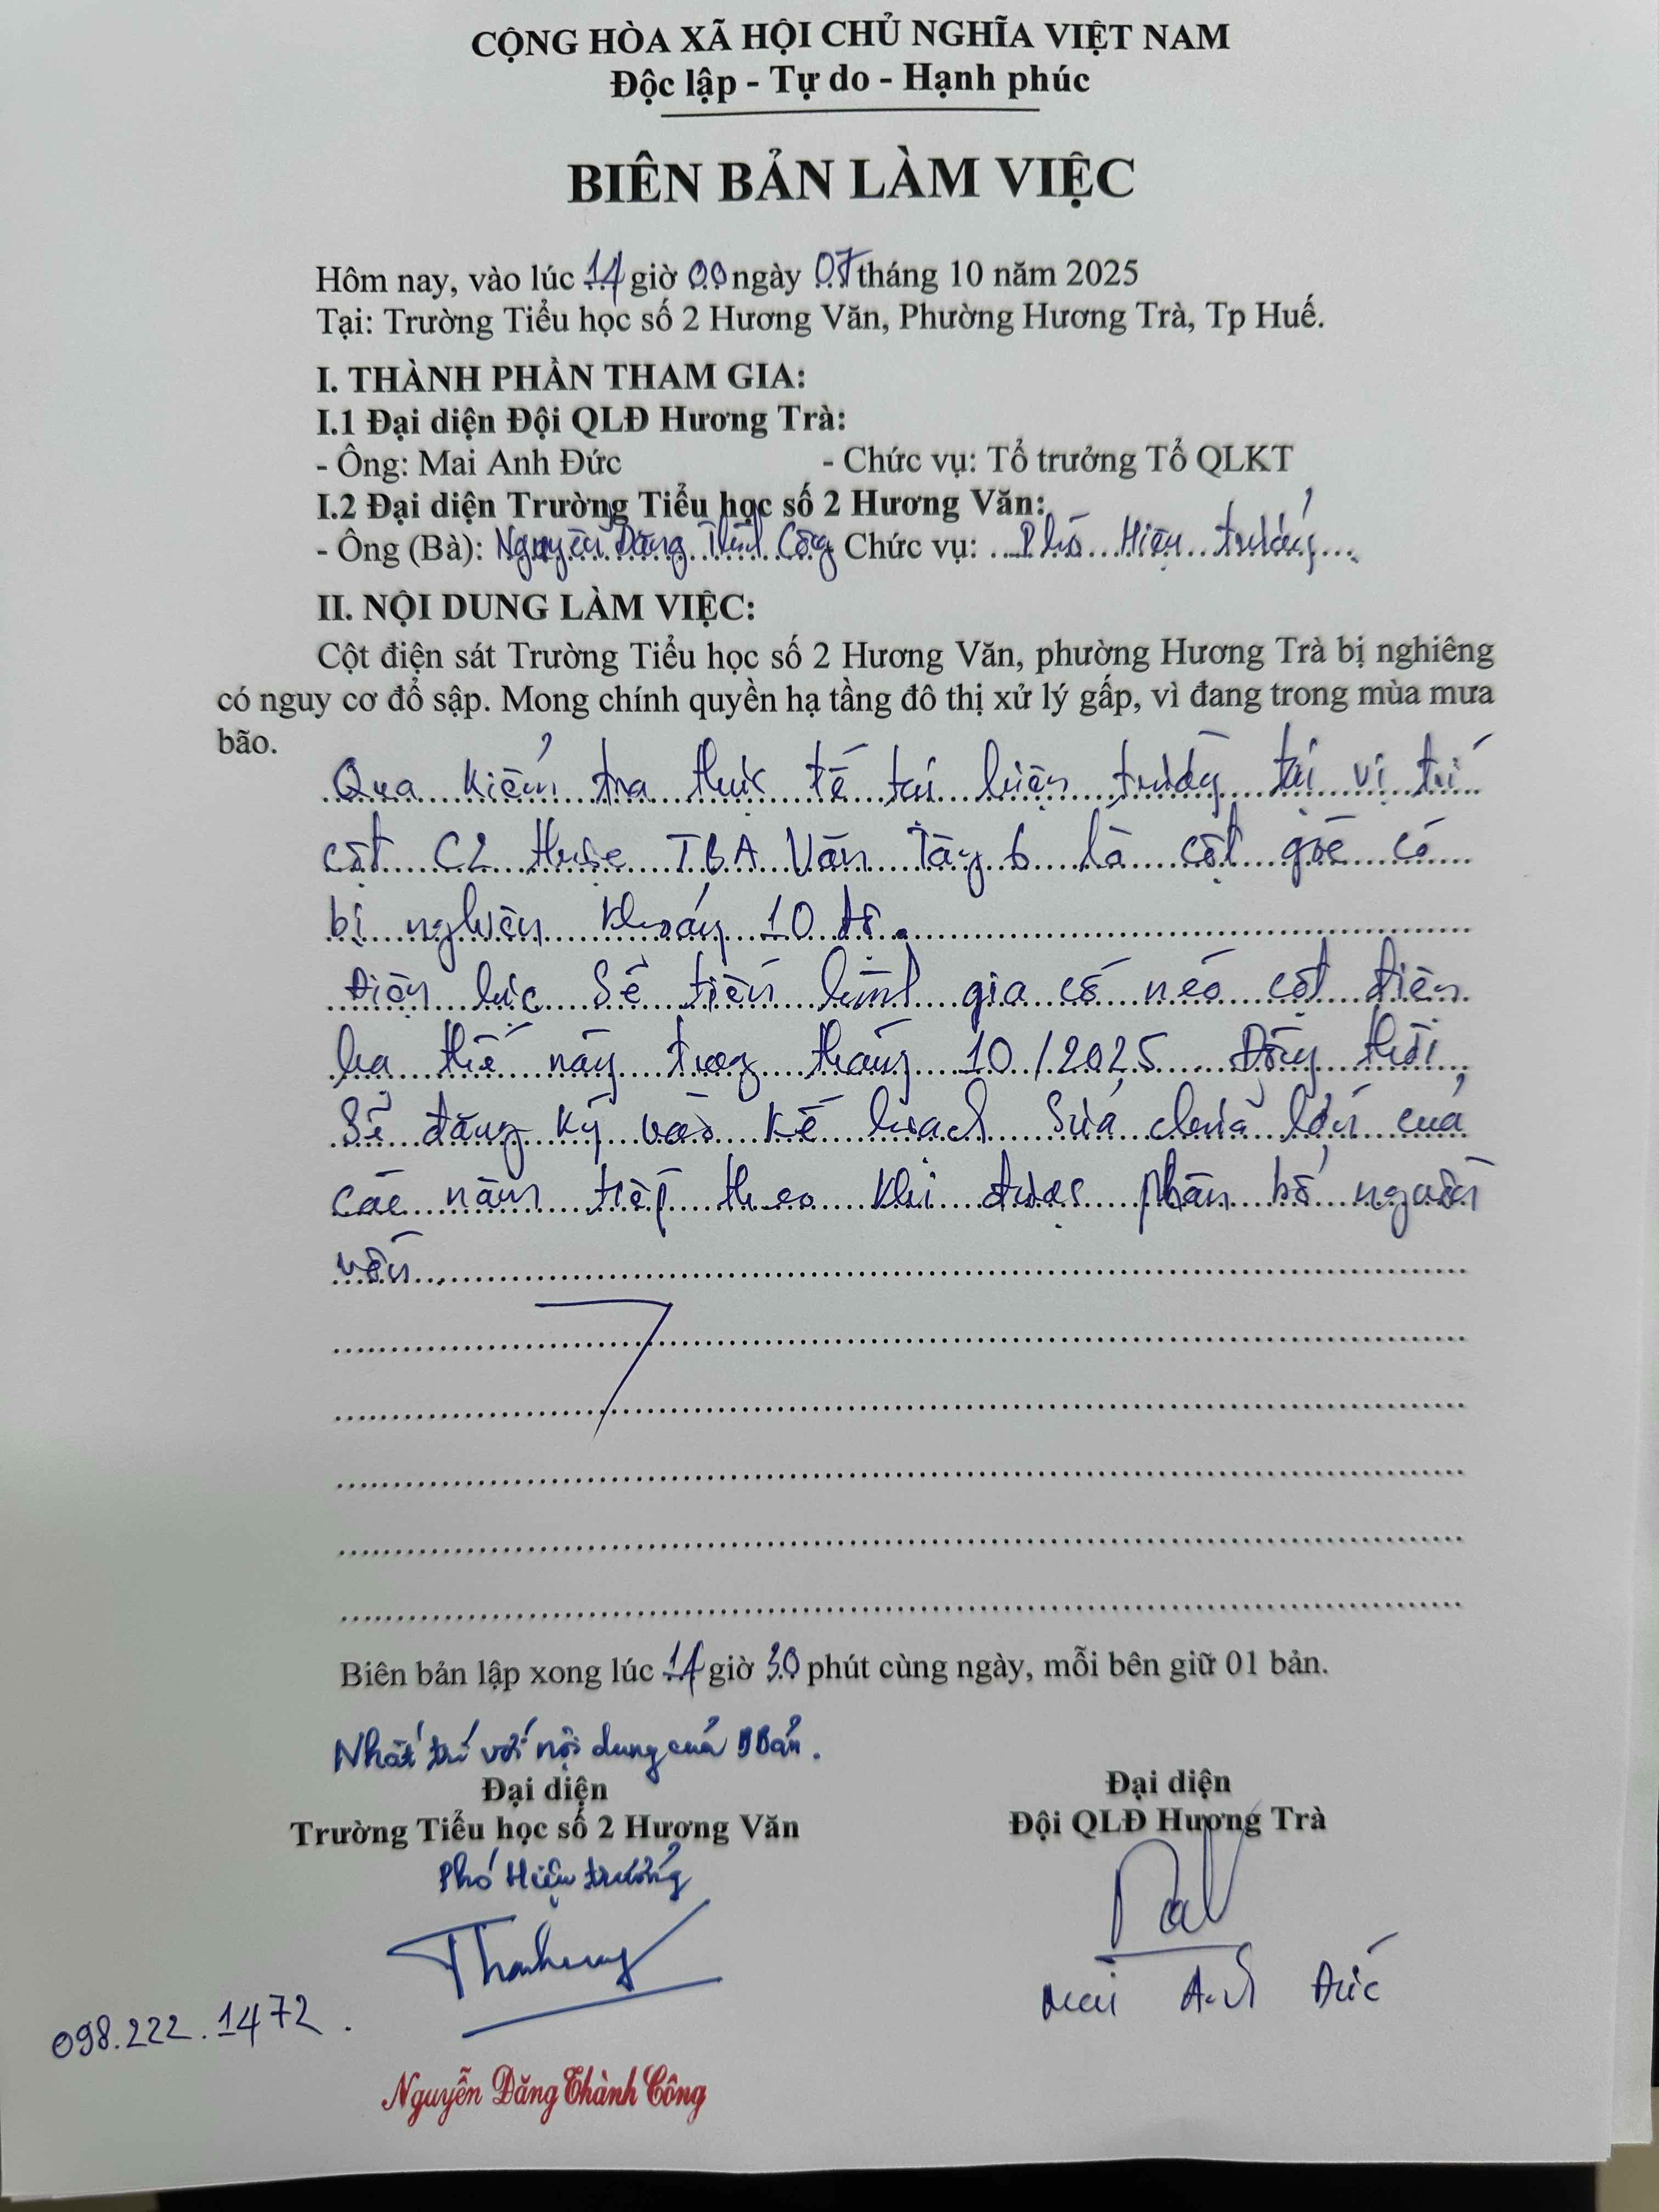 CỘNG HÒA XÃ HỘI CHỦ NGHĨA VIỆT NAM
Độc lập - Tự do - Hạnh phúc
BIÊN BẢN LÀM VIỆC
Hôm nay, vào lúc 14 giờ 00 ngày 07 tháng 10 năm 2025
Tại: Trường Tiểu học số 2 Hương Văn, Phường Hương Trà, Tp Huế.
I. THÀNH PHẦN THAM GIA:
I.1 Đại diện Đội QLĐ Hương Trà:
- Ông: Mai Anh Đức - Chức vụ: Tổ trưởng Tổ QLKT
I.2 Đại diện Trường Tiểu học số 2 Hương Văn:
- Ông (Bà): Nguyễn Đăng Thành Công Chức vụ: Phó Hiệu trưởng
II. NỘI DUNG LÀM VIỆC:
Cột điện sát Trường Tiểu học số 2 Hương Văn, phường Hương Trà bị nghiêng
có nguy cơ đổ sập. Mong chính quyền hạ tầng đô thị xử lý gấp, vì đang trong mùa mưa
bão.
Qua kiểm tra thực tế tại hiện trường tại vị trí
cột C2 thuộc TBA Văn Tây 6 là cột góc có
bị nghiên khoảng 10 độ.
Điện lực sẽ tiến hành gia cố néo cột điện
hạ thế này trong tháng 10/2025. Đồng thời
sẽ đăng ký vào kế hoạch sửa chữa lớn của
các năm tiếp theo khi được phân bổ nguồn
vốn.
Biên bản lập xong lúc 14 giờ 30 phút cùng ngày, mỗi bên giữ 01 bản.
Nhất trí với nội dung của BBản.
Đại diện
Trường Tiểu học số 2 Hương Văn
Phó Hiệu trưởng
098.222.1472.
Nguyễn Đăng Thành Công
Đại diện
Đội QLĐ Hương Trà
Mai Anh Đức